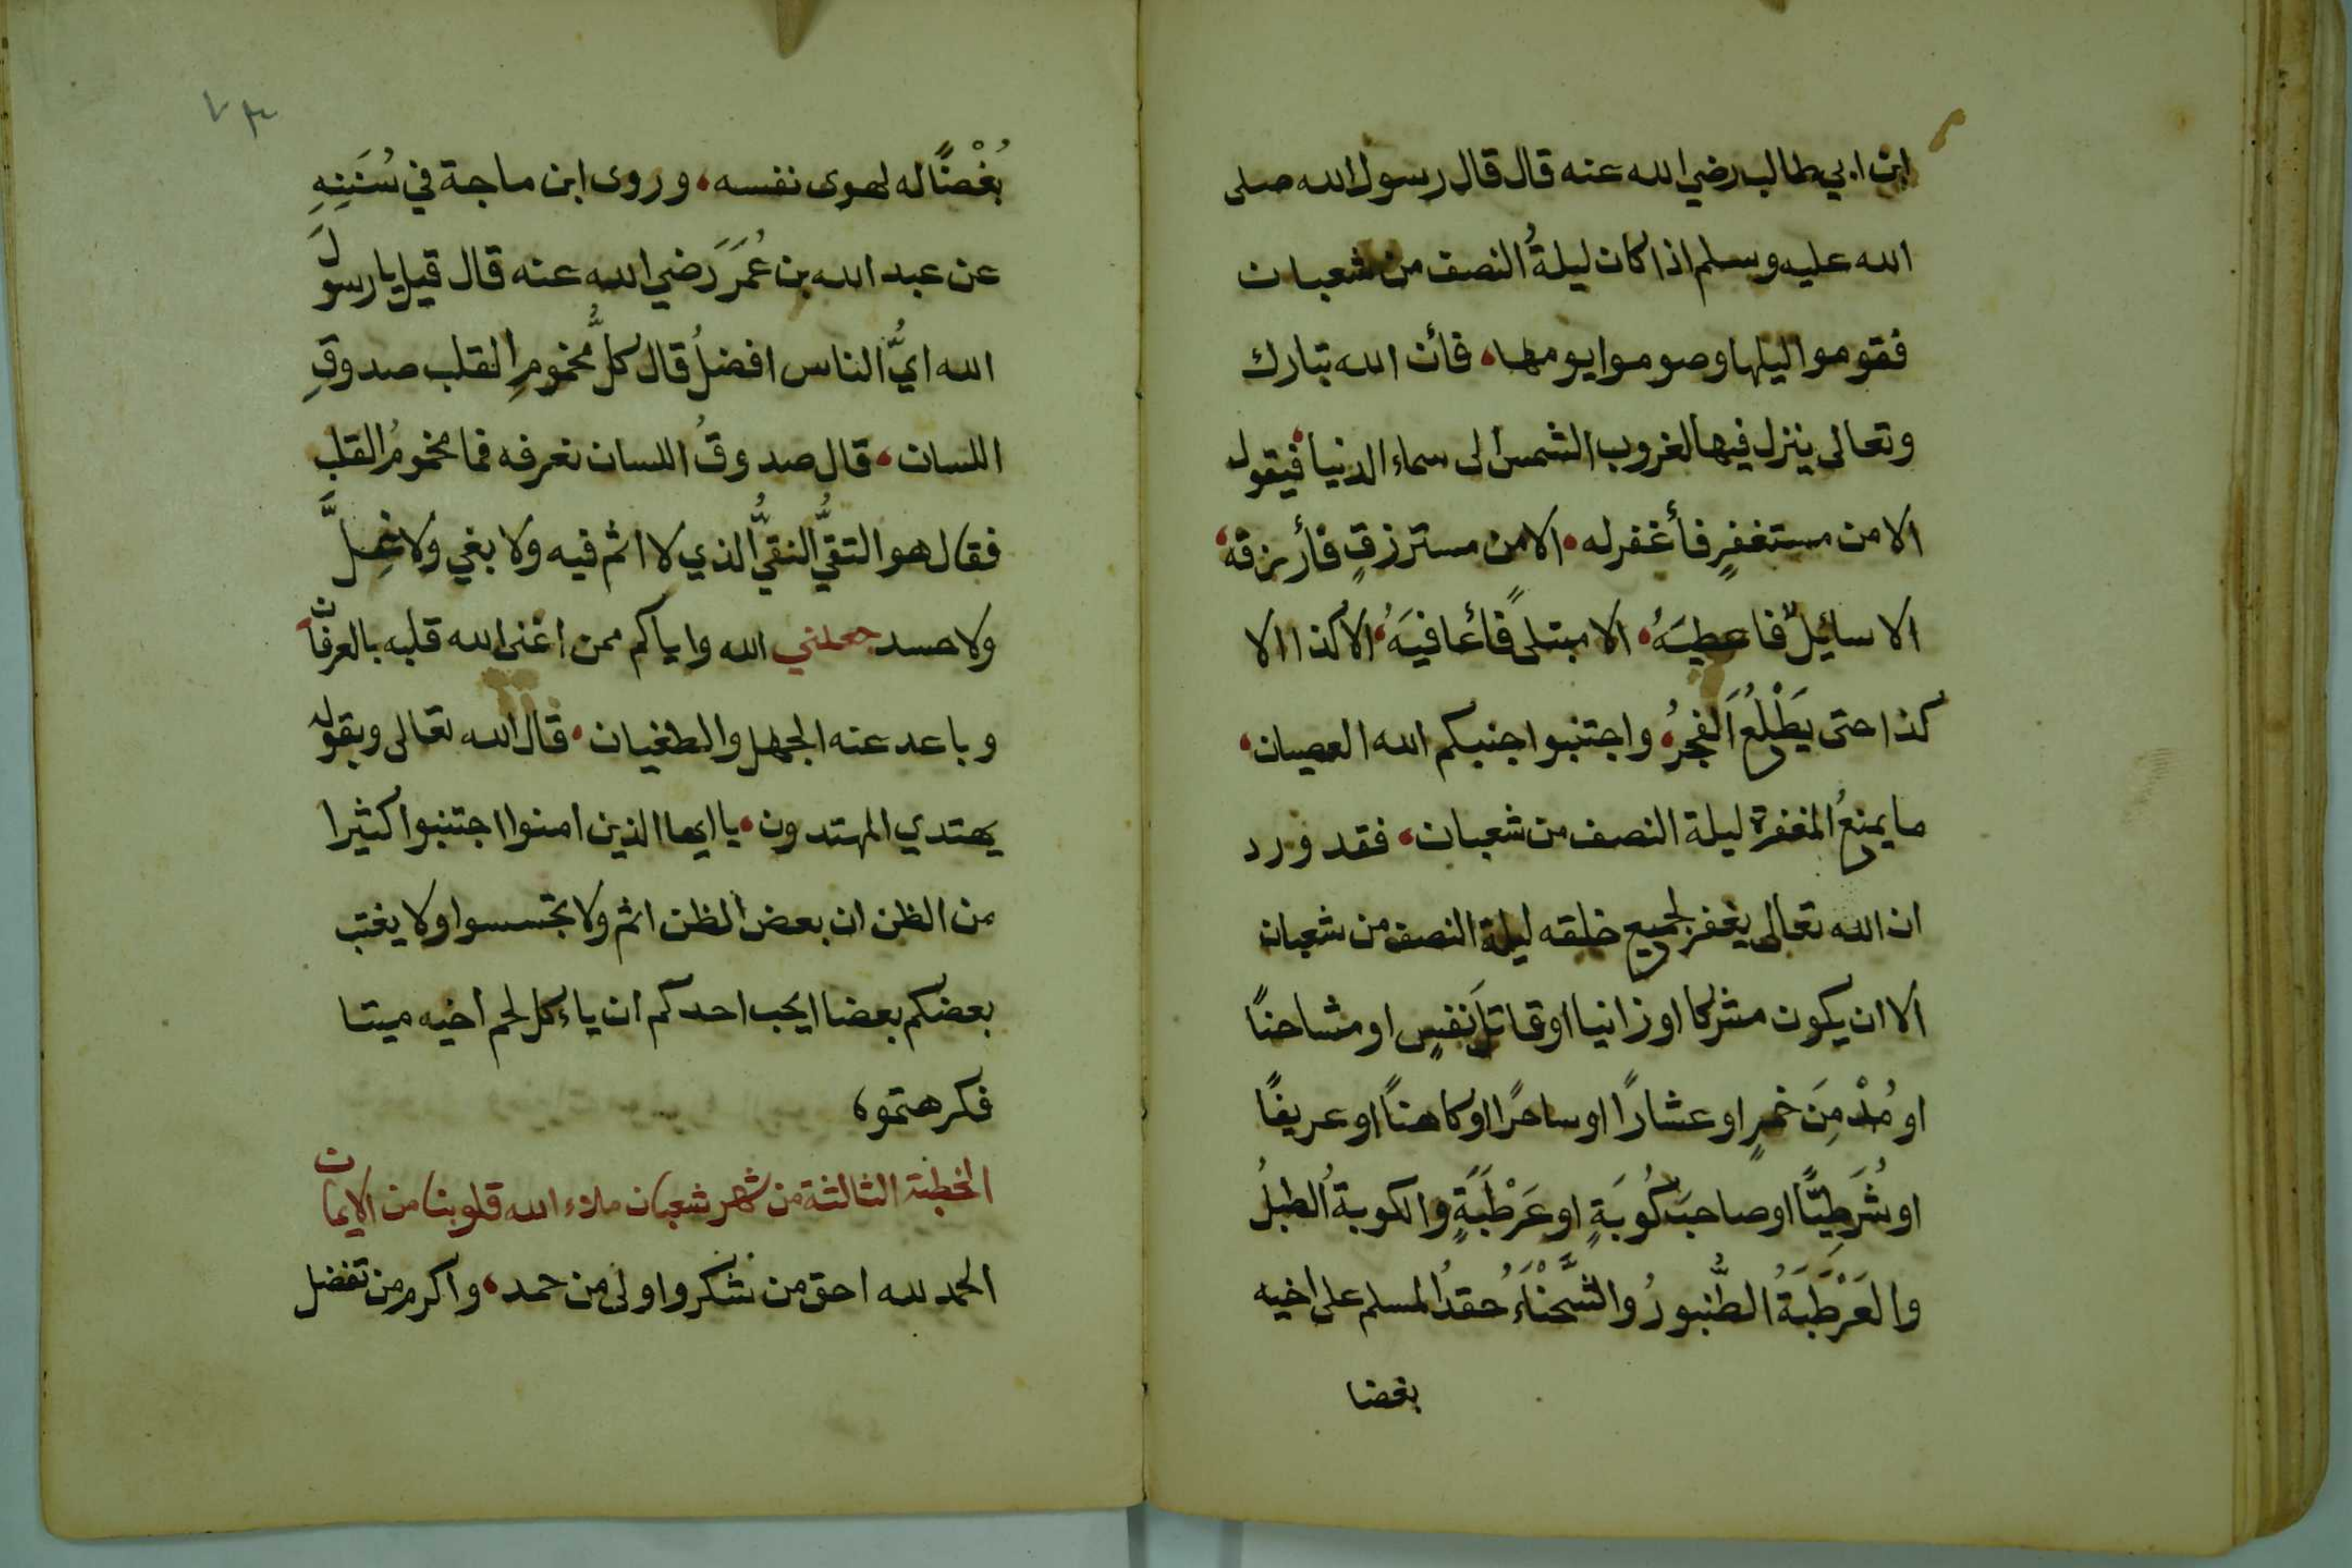 ابن ابي طالب رضي الله عنه قال قال رسول الله صلى
الله عليه وسلم اذا كان ليلةُ النصف من شعبان
فقوموا ليلها وصوموا يومها، فأن الله تبارك
وتعالى ينزل فيها لغروب الشمس الى سماء الدنيا، فيقول
الا من مستغفرٍ فأغفر له، الا من مسترزقٍ فأرزقه،
الا سايلٌ فاعطيَهُ، الا مبتلىً فأعافيَهُ، الا كذا الا
كذا حتى يَطْلُعَ الفجرُ، واجتنبوا جنبكم الله العصيان،
ما يمنعُ المغفرة ليلة النصف من شعبان، فقد ورد
ان الله تعالى يغفر لجميع خلقه ليلة النصف من شعبان
الا ان يكون مشركا او زانيا او قاتلَ نفسٍ او مشاحنًا
او مُدْمِنَ خمرٍ او عشارًا او ساحرًا او كاهنًا او عريفًا
او شُرَطِيًّا او صاحبَ كُوبَةٍ او عَرْطَبَةٍ والكوبةُ الطبلُ
والعَرْطَبَةُ الطُّنبورُ والشَّحْنَاءُ حقدُ المسلم على اخيه
بغضا
بُغْضًا له لهوى نفسه، وروى ابن ماجة في سُنَنِهِ
عن عبد الله بن عُمَرَ رَضي الله عنه قال قيل يا رسولَ
الله ايُّ الناس افضلُ قال كلُّ مخمومِ القلب صدوقِ
اللسان، قال صدوقُ اللسان نعرفه فما مخمومُ القلب
فقال هو التقيُّ النقيُّ الذي لا اثم فيه ولا بغي ولا غِلَّ
ولا حسد جعلني الله واياكم ممن اغنى الله قلبه بالعرفان،
وباعد عنه الجهل والطغيان، قال الله تعالى وبقوله
يهتدي المهتدون، يا ايها الذين امنوا اجتنبوا كثيرا
من الظن ان بعض الظن اثم ولا تجسسوا ولا يغتب
بعضكم بعضا ايحب احدكم ان ياءكل لحم اخيه ميتا
فكرهتموه
الخطبة الثالثة من شهر شعبان ملاء الله قلوبنا من الايمان
الحمد لله احق من شكر واولى من حمد، واكرم من تفضل